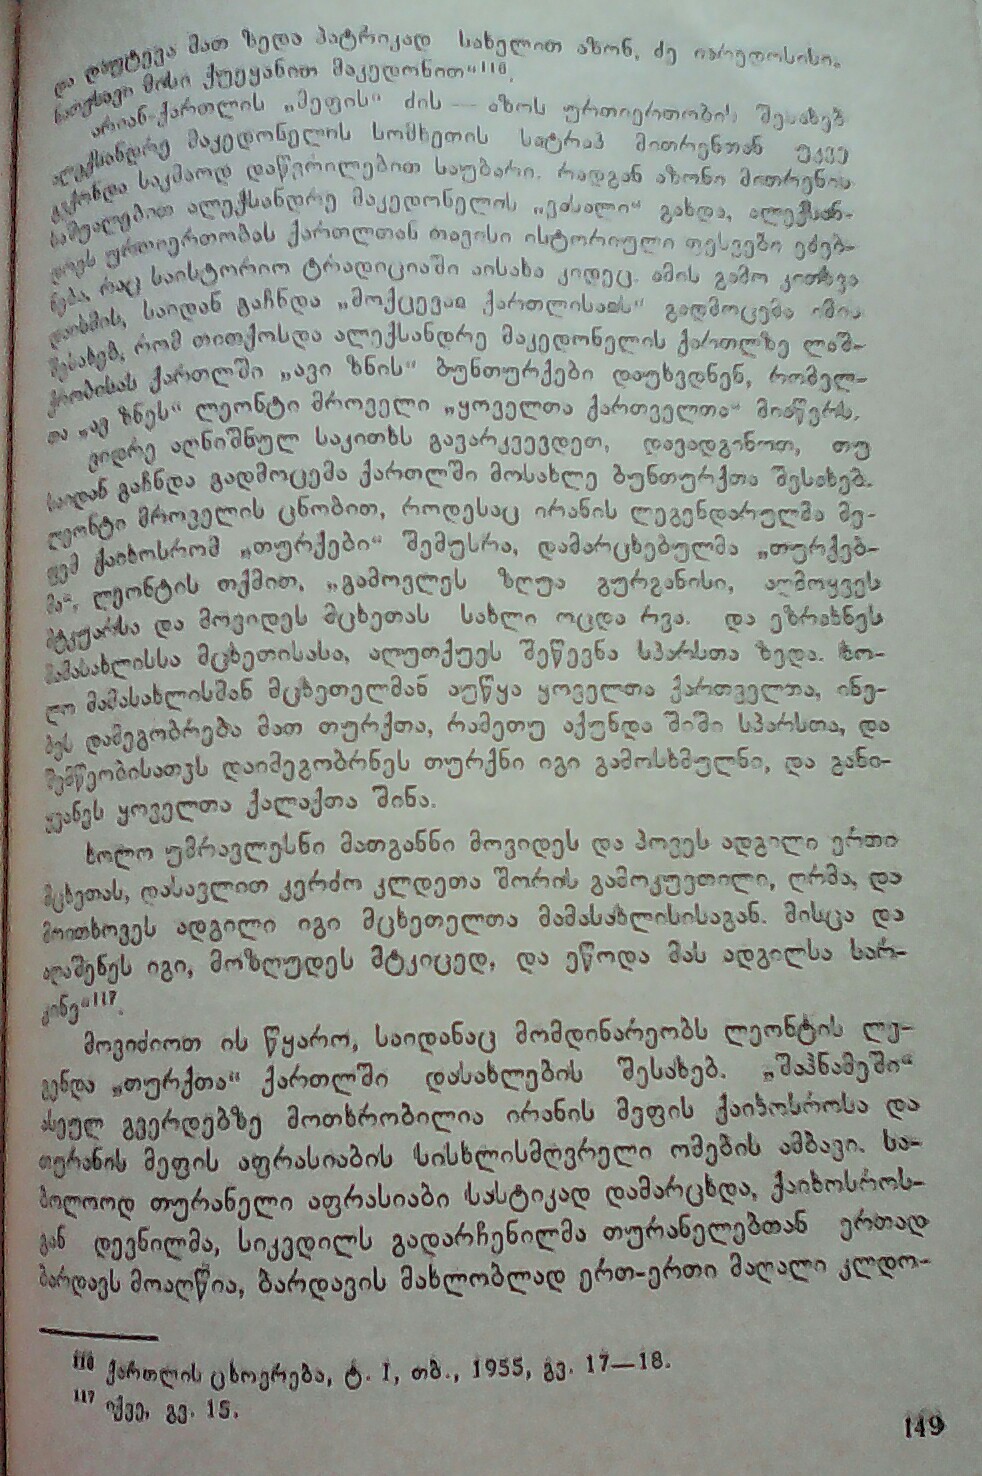 და დაუტევა მათ ზედა პატრიკად სახელით აზონ, ძე იარედოსისი,
ნათესავი მისი ქუეყანით მაკედონით“¹¹⁶.
არიან-ქართლის „მეფის“ ძის — აზოს ურთიერთობის შესახებ
ალექსანდრე მაკედონელის სომხეთის სატრაპ მითრენთან უკვე
გვქონდა საკმაოდ დაწვრილებით საუბარი. რადგან აზონი მითრენის
საშუალებით ალექსანდრე მაკედონელის „ვასალი“ გახდა, ალექსან-
დრეს ურთიერთობას ქართლთან თავისი ისტორიული ფესვები ეძებ-
ნება, რაც საისტორიო ტრადიციაში აისახა კიდეც. ამის გამო კითხვა
დაისმის, საიდან გაჩნდა „მოქცევაჲ ქართლისაჲს“ გადმოცემა იმის
შესახებ, რომ თითქოსდა ალექსანდრე მაკედონელის ქართლზე ლაშ-
ქრობისას ქართლში „ავი ზნის“ ბუნთურქები დაუხვდნენ, რომელ-
თა „ავ ზნეს“ ლეონტი მროველი „ყოველთა ქართველთა“ მიაწერს.
ვიდრე აღნიშნულ საკითხს გავარკვევდეთ, დავადგინოთ, თუ
საიდან გაჩნდა გადმოცემა ქართლში მოსახლე ბუნთურქთა შესახებ.
ლეონტი მროველის ცნობით, როდესაც ირანის ლეგენდარულმა მე-
ფემ ქაიხოსრომ „თურქები“ შემუსრა, დამარცხებულმა „თურქებ-
მა“, ლეონტის თქმით, „გამოვლეს ზღუა გურგანისი, აღმოყვეს
მტკუარსა და მოვიდეს მცხეთას სახლი ოცდა რვა. და ეზრახნეს
მამასახლისსა მცხეთისასა, აღუთქუეს შეწევნა სპარსთა ზედა. ხო-
ლო მამასახლისმან მცხეთელმან აუწყა ყოველთა ქართველთა, ინე-
ბეს დამეგობრება მათ თურქთა, რამეთუ აქუნდა შიში სპარსთა, და
შემწეობისათჳს დაიმეგობრნეს თურქნი იგი გამოსხმულნი, და განი-
ყვანეს ყოველთა ქალაქთა შინა.
ხოლო უმრავლესნი მათგანნი მოვიდეს და პოვეს ადგილი ერთი
მცხეთას, დასავლით კერძო კლდეთა შორის გამოკუეთილი, ღრმა, და
მოითხოვეს ადგილი იგი მცხეთელთა მამასახლისისაგან. მისცა და
აღაშენეს იგი, მოზღუდეს მტკიცედ, და ეწოდა მას ადგილსა სარ-
კინე“¹¹⁷.
მოვიძიოთ ის წყარო, საიდანაც მომდინარეობს ლეონტის ლე-
გენდა „თურქთა“ ქართლში დასახლების შესახებ. „შაჰნამეში“
ასეულ გვერდებზე მოთხრობილია ირანის მეფის ქაიხოსროსა და
თურანის მეფის აფრასიაბის სისხლისმღვრელი ომების ამბავი. სა-
ბოლოოდ თურანელი აფრასიაბი სასტიკად დამარცხდა, ქაიხოსროს-
გან დევნილმა, სიკვდილს გადარჩენილმა თურანელებთან ერთად
ბარდავს მოაღწია, ბარდავის მახლობლად ერთ-ერთი მაღალი კლდო-
¹¹⁶ ქართლის ცხოვრება, ტ. I, თბ., 1955, გვ. 17—18.
¹¹⁷ იქვე, გვ. 15.
149